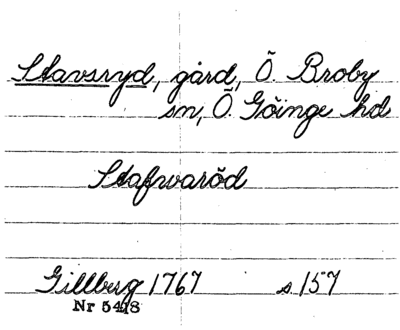 Stavsryd, gård, Ö. Broby
sn, Ö. Göinge hd
Stafwaröd
Gillberg 1767 s 157
Nr 5418